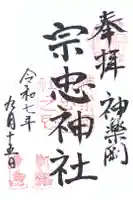 奉拝
神楽岡
宗忠神社
令和七年
九月十五日